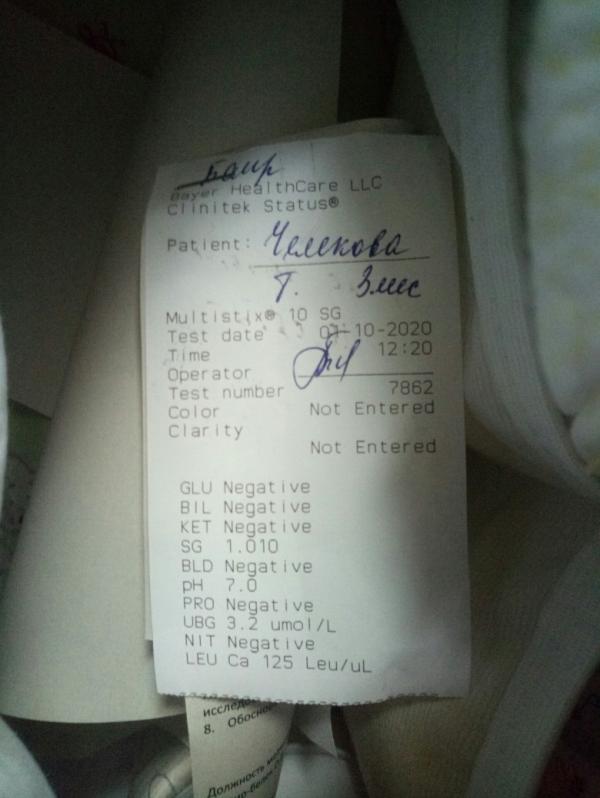 Bayer HealthCare LLC
Clinitek Status®
Patient: Челекова
Т. 3 мес
Multistix® 10 SG
Test date 07-10-2020
Time 12:20
Operator
Test number 7862
Color Not Entered
Clarity
Not Entered
GLU Negative
BIL Negative
KET Negative
SG 1.010
BLD Negative
pH 7.0
PRO Negative
UBG 3.2 umol/L
NIT Negative
LEU Ca 125 Leu/uL
8. Обосно
Должность